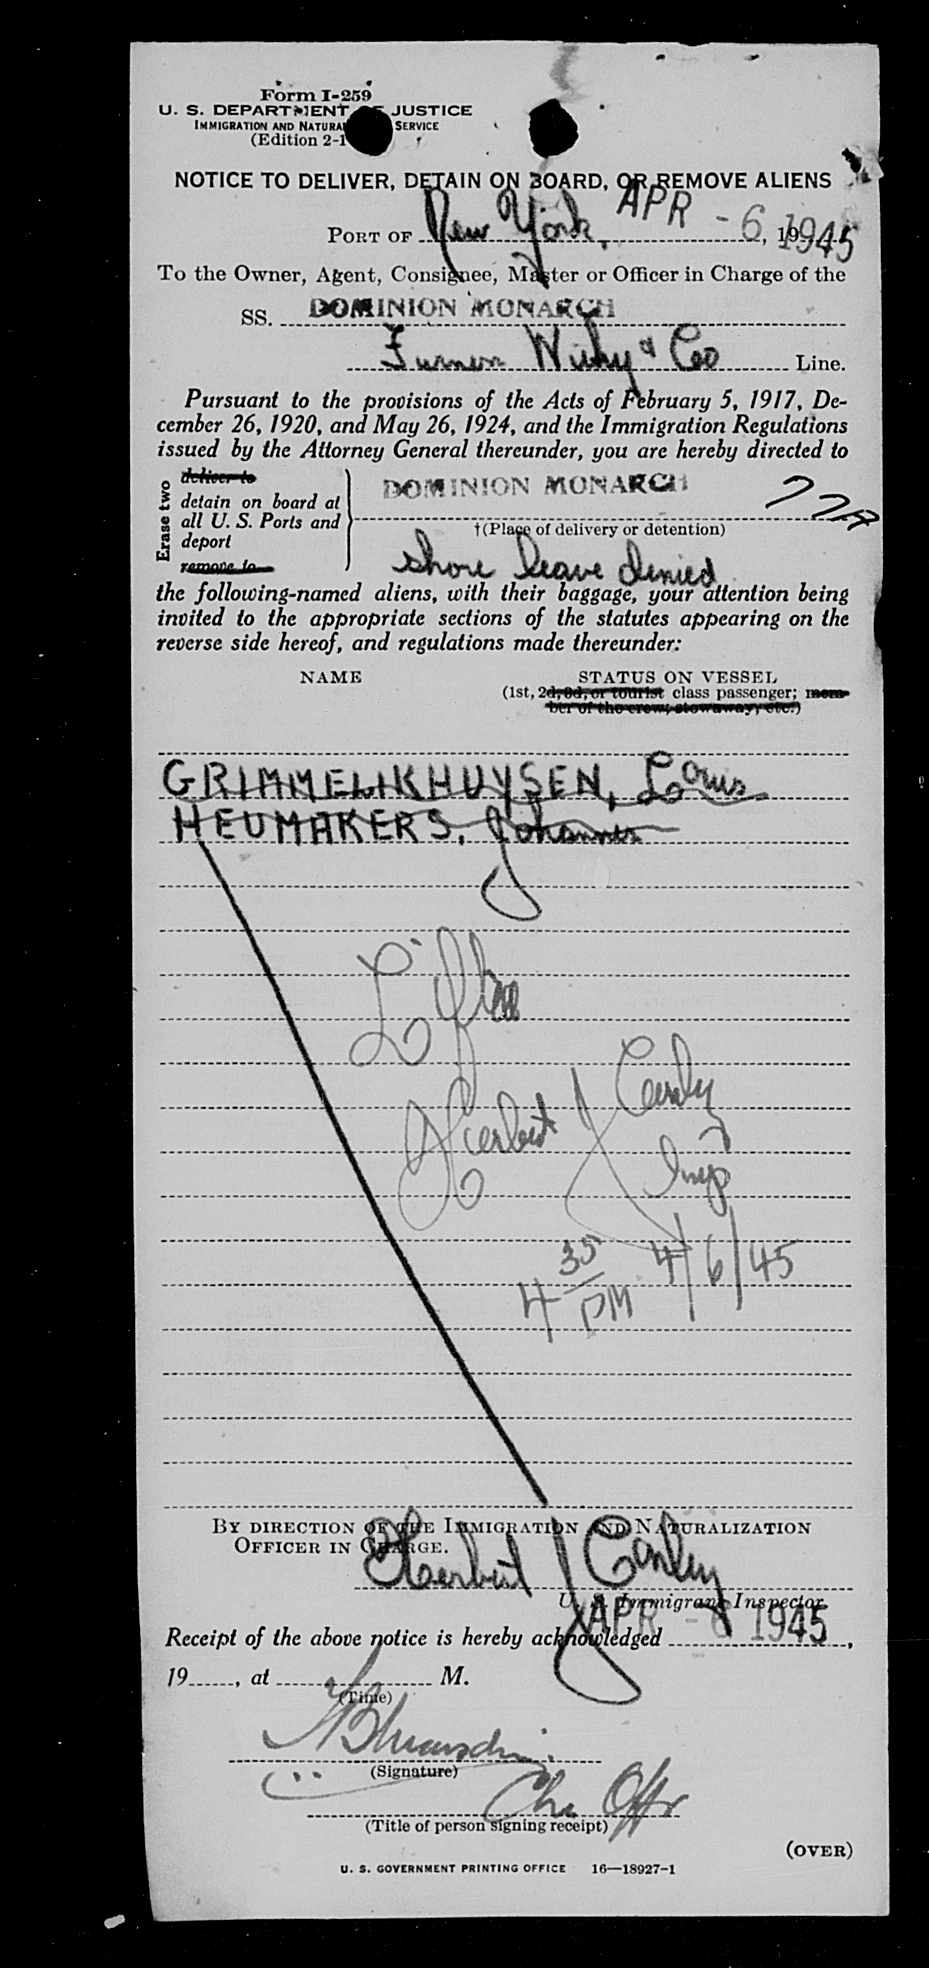 Form I-259
U. S. DEPARTMENT OF JUSTICE
IMMIGRATION AND NATURA SERVICE
(Edition 2-1
NOTICE TO DELIVER, DETAIN ON BOARD, OR REMOVE ALIENS
PORT OF New York, APR - 6 1945, 19
To the Owner, Agent, Consignee, Master or Officer in Charge of the
SS. DOMINION MONARCH
Furness Withy & Co Line.
Pursuant to the provisions of the Acts of February 5, 1917, De-
cember 26, 1920, and May 26, 1924, and the Immigration Regulations
issued by the Attorney General thereunder, you are hereby directed to
Erase two
deliver to
detain on board at
all U. S. Ports and
deport
remove to
DOMINION MONARCH
†(Place of delivery or detention)
shore leave denied
the following-named aliens, with their baggage, your attention being
invited to the appropriate sections of the statutes appearing on the
reverse side hereof, and regulations made thereunder:
NAME STATUS ON VESSEL
(1st, 2d, 3d, or tourist class passenger; mem-
ber of the crew, stowaway, etc.)
GRIMMELIKHUYSEN, Louis
HEUMAKERS, Johannes
Lifted
Herbert J Conley
Insp
4 35 PM 4/6/45
BY DIRECTION OF THE IMMIGRATION AND NATURALIZATION
OFFICER IN CHARGE.
Herbert J Conley
U. S. Immigrant Inspector.
APR - 6 1945
Receipt of the above notice is hereby acknowledged ,
19 , at M.
(Time)
(Signature)
Ch. Offr
(Title of person signing receipt)
(OVER)
U. S. GOVERNMENT PRINTING OFFICE 16—18927-1